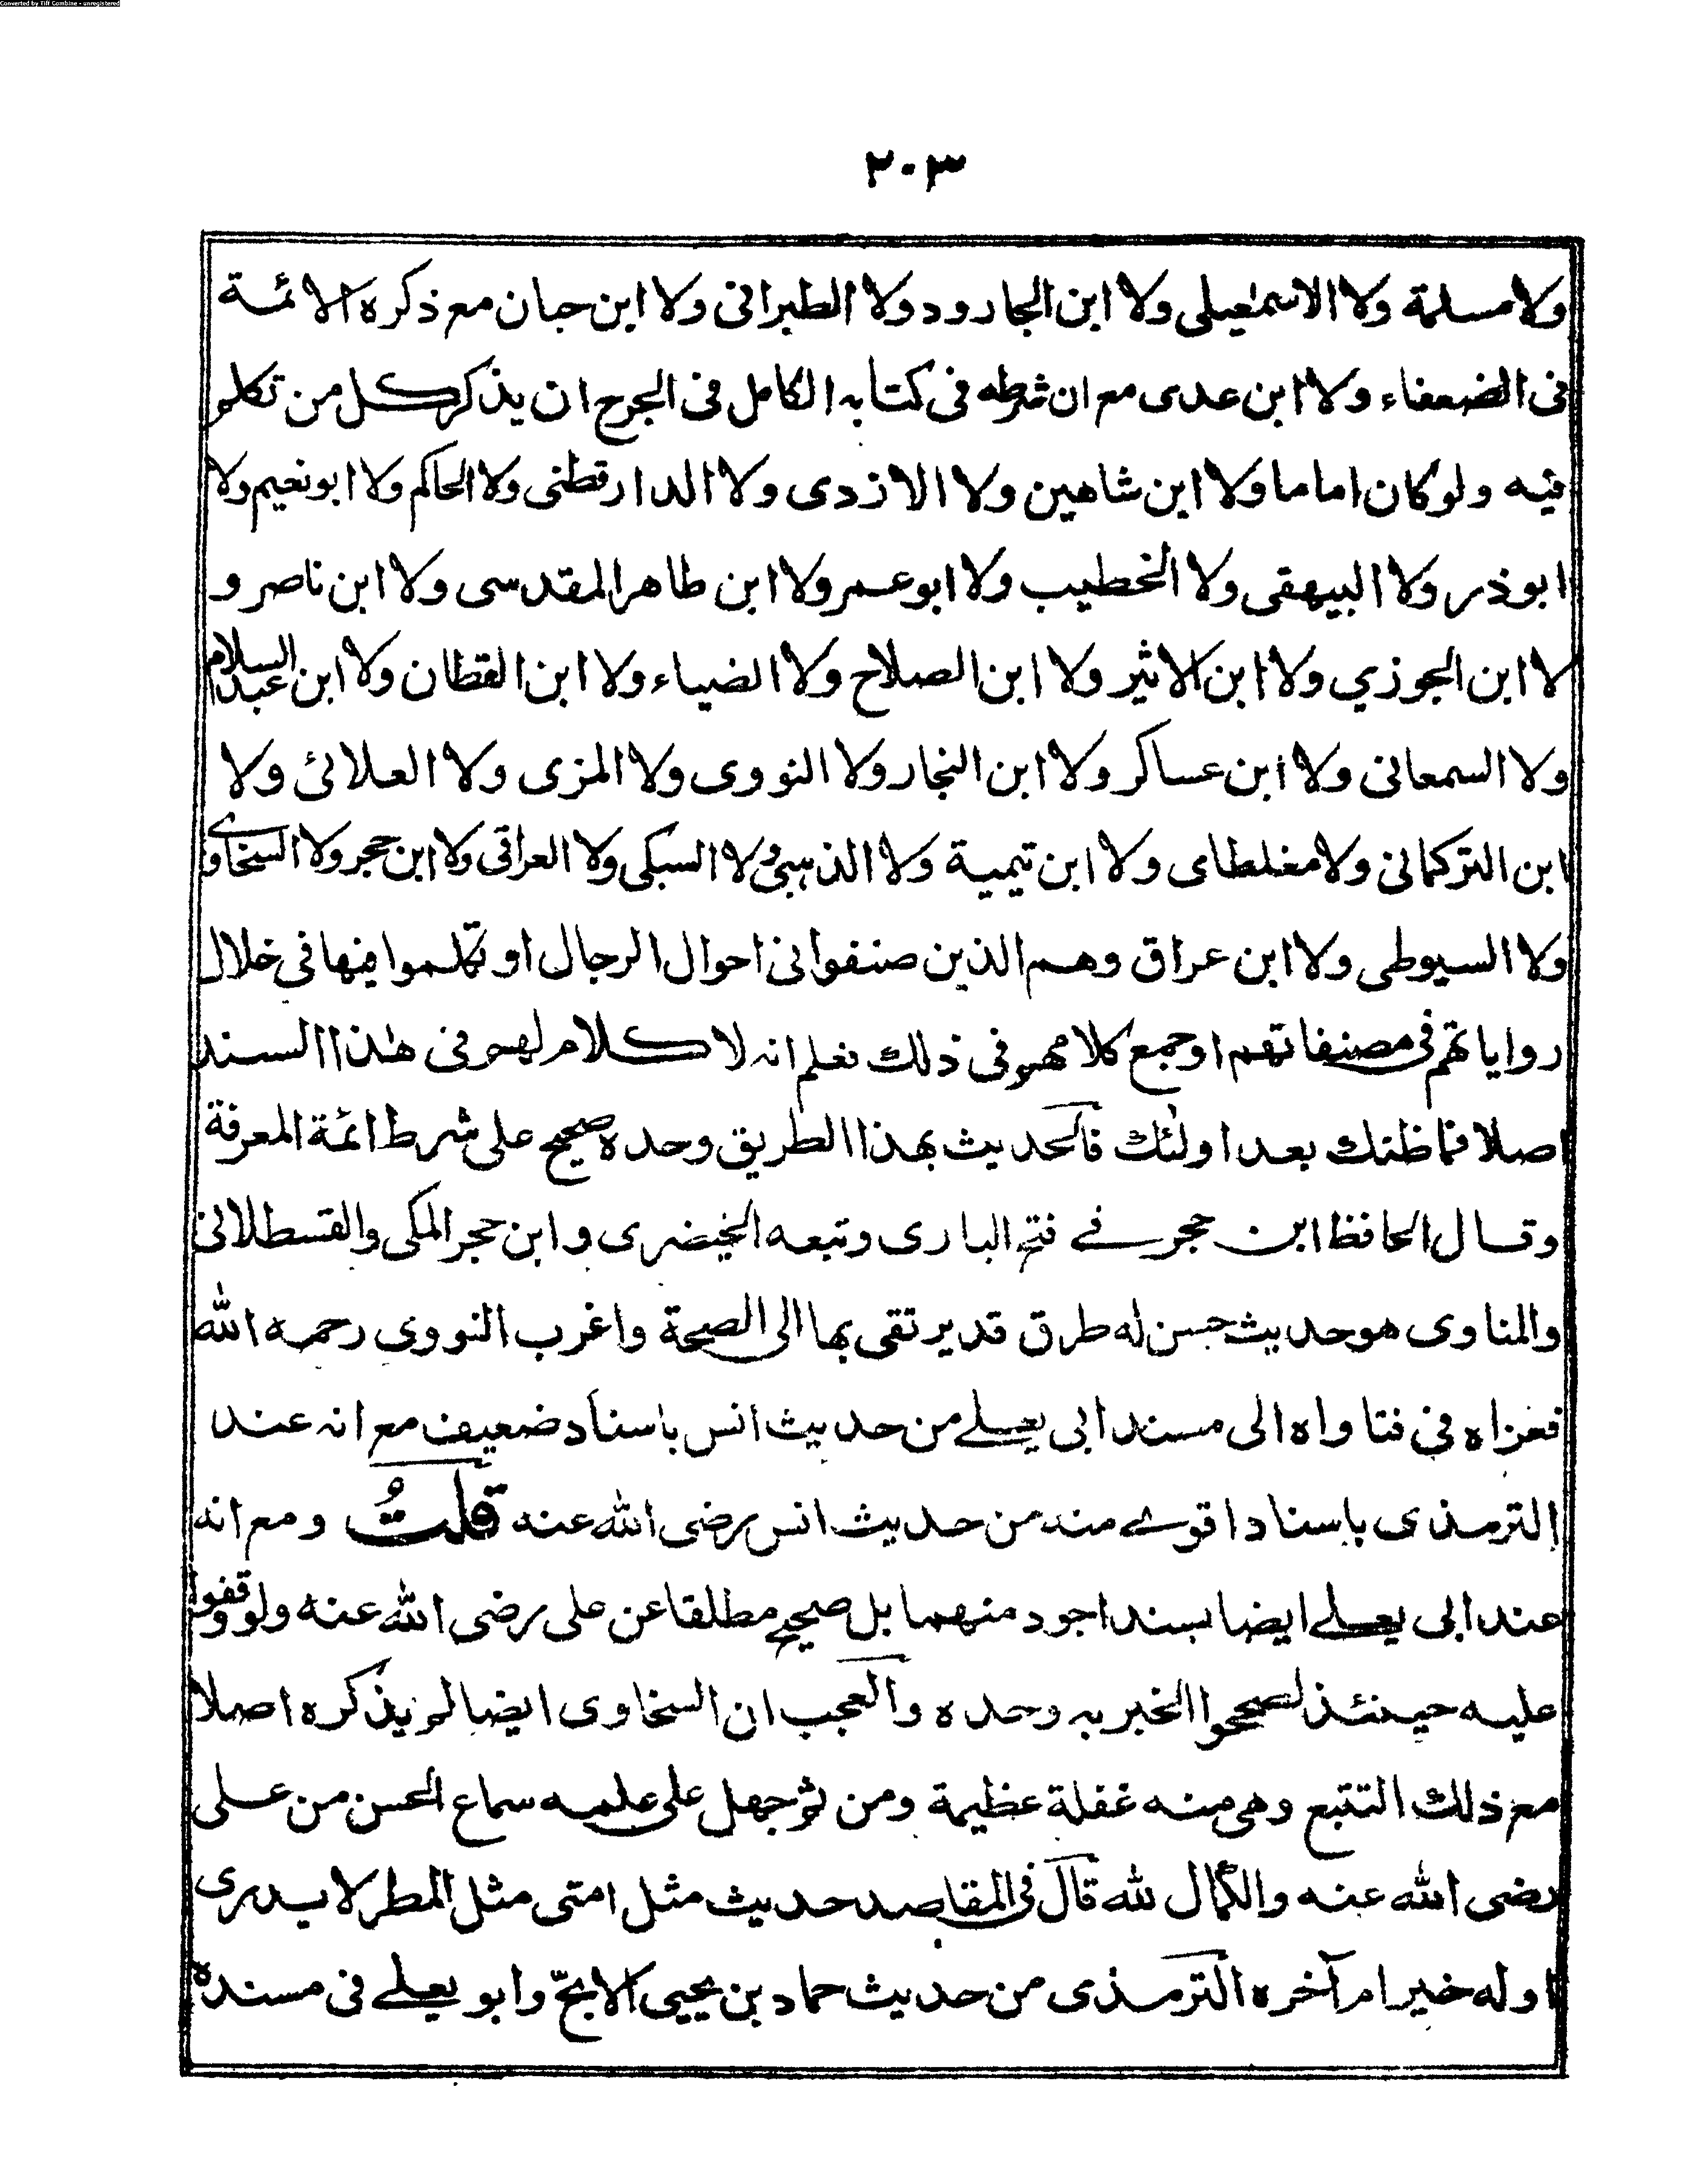 Converted by Tiff Combine - unregistered
٢٠٣
ولا مسلمة ولا الاسمعيلى ولا ابن الجارود ولا الطبرانى ولا ابن حبان مع ذكره الائمة
فى الضعفاء ولا ابن عدى مع ان شرطه فى كتابه الكامل فى الجرح ان يذكر كل من تكلم
فيه ولو كان اماما ولا ابن شاهين ولا الازدى ولا الدارقطنى ولا الحاكم ولا ابو نعيم ولا
ابوذر ولا البيهقى ولا الخطيب ولا ابو عمر ولا ابن طاهر المقدسى ولا ابن ناصر و
لا ابن الجوزي ولا ابن الاثير ولا ابن الصلاح ولا الضياء ولا ابن القطان ولا ابن عبد السلام
ولا السمعانى ولا ابن عساكر ولا ابن النجار ولا النووى ولا المزى ولا العلائى ولا
ابن التركمانى ولا مغلطاى ولا ابن تيمية ولا الذهبى ولا السبكى ولا العراقى ولا ابن حجر ولا السخاوے
ولا السيوطى ولا ابن عراق وهم الذين صنفوا فى احوال الرجال او تكلموا فيها فى خلال
رواياتهم فى مصنفاتهم او جمع كلامهم فى ذلك فعلم انه لا كلام لهم فى هذا السند
اصلا فما ظنك بعد اولئك فالحديث بهذا الطريق وحده صحيح على شرط ائمة المعرفة
وقال الحافظ ابن حجر فے فتح البارى وتبعه الخيضرى وابن حجر المكى والقسطلانى
والمناوى هو حديث حسن له طرق قد يرتقى بها الى الصحة واغرب النووى رحمه الله
فعزاه فى فتاواه الى مسند ابى يعلے من حديث انس باسناد ضعيف مع انه عند
الترمذى باسناد اقوے منه من حديث انس رضى الله عنه قلتُ ومع انه
عند ابى يعلے ايضا بسند اجود منهما بل صحيح مطلقا عن على رضى الله عنه ولو وقفوا
عليه حينئذ لصححوا الخبر به وحده والعجب ان السخاوى ايضا لم يذكره اصلا
مع ذلك التتبع وهى منه غفلة عظيمة ومن ثم جهل على علمه سماع الحسن من على
رضى الله عنه والكمال لله قال فى المقاصد حديث مثل امتى مثل المطر لا يدرى
اوله خير ام آخره الترمذى من حديث حماد بن يحيى الابحّ وابو يعلے فى مسنده